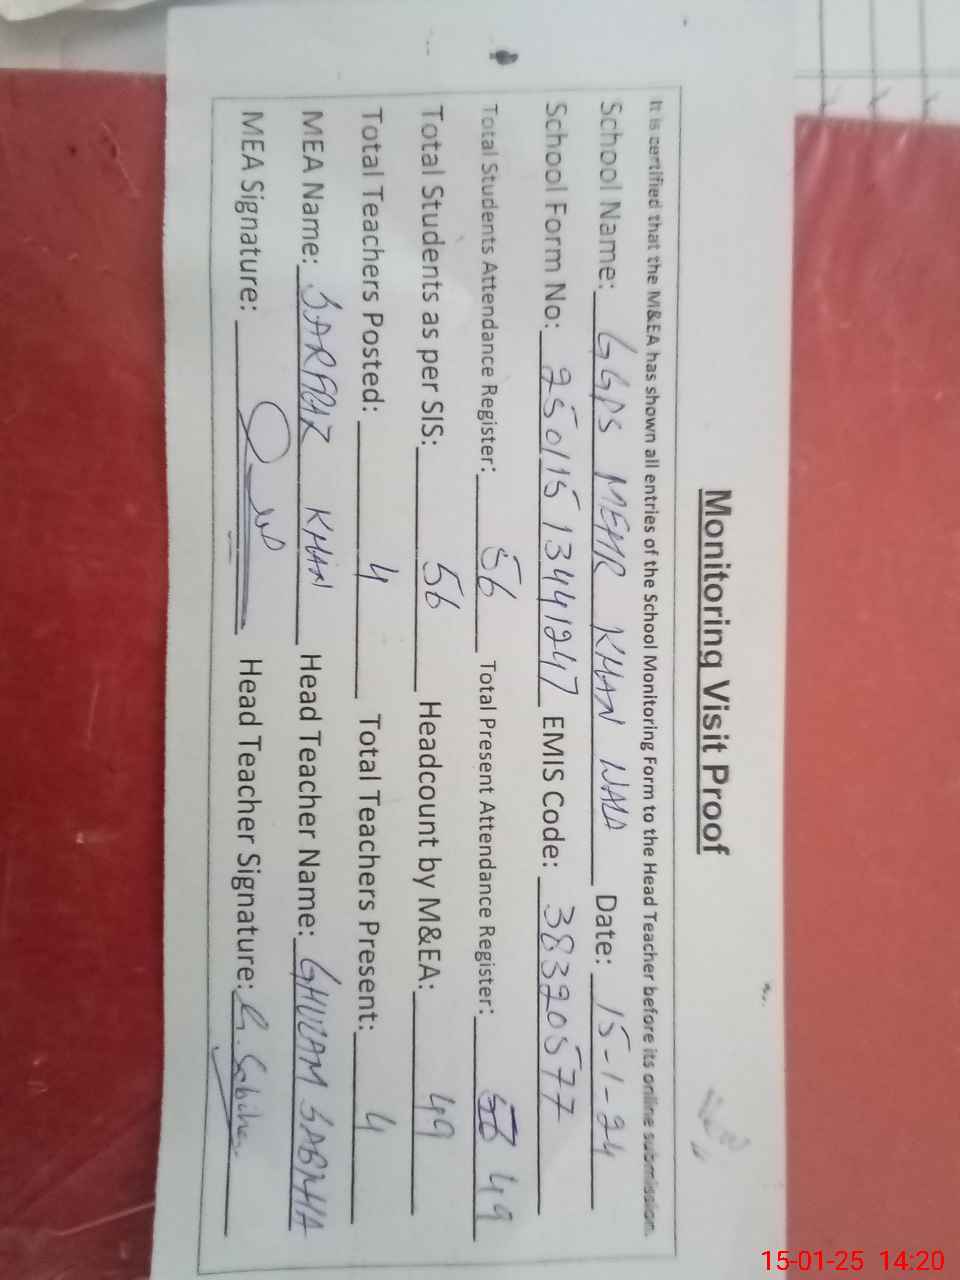 Monitoring Visit Proof
It is certified that the M&EA has shown all entries of the School Monitoring Form to the Head Teacher before its online submission.
School Name: GGPS MEHR KHAN WALA Date: 15-1-24
School Form No: 25011513441247 EMIS Code: 38320577
Total Students Attendance Register: 56 Total Present Attendance Register: 49
Total Students as per SIS: 56 Headcount by M&EA: 49
Total Teachers Posted: 4 Total Teachers Present: 4
MEA Name: SARFRAZ KHAN Head Teacher Name: GHULAM SABIHA
MEA Signature: Head Teacher Signature: G. Sabiha
15-01-25 14:20